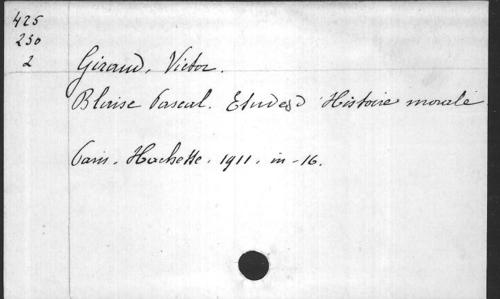 425
230
2
Giraud, Victor.
Blaise Pascal. Etudes d'Histoire morale
Paris. Hachette. 1911. in-16.